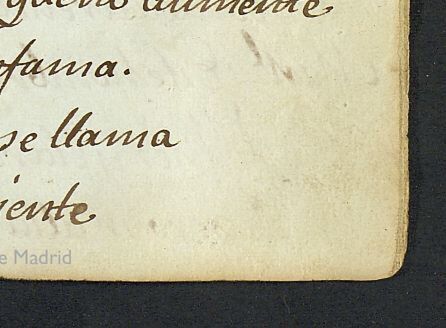 aumente
ofama.
se llama
iente
e Madrid